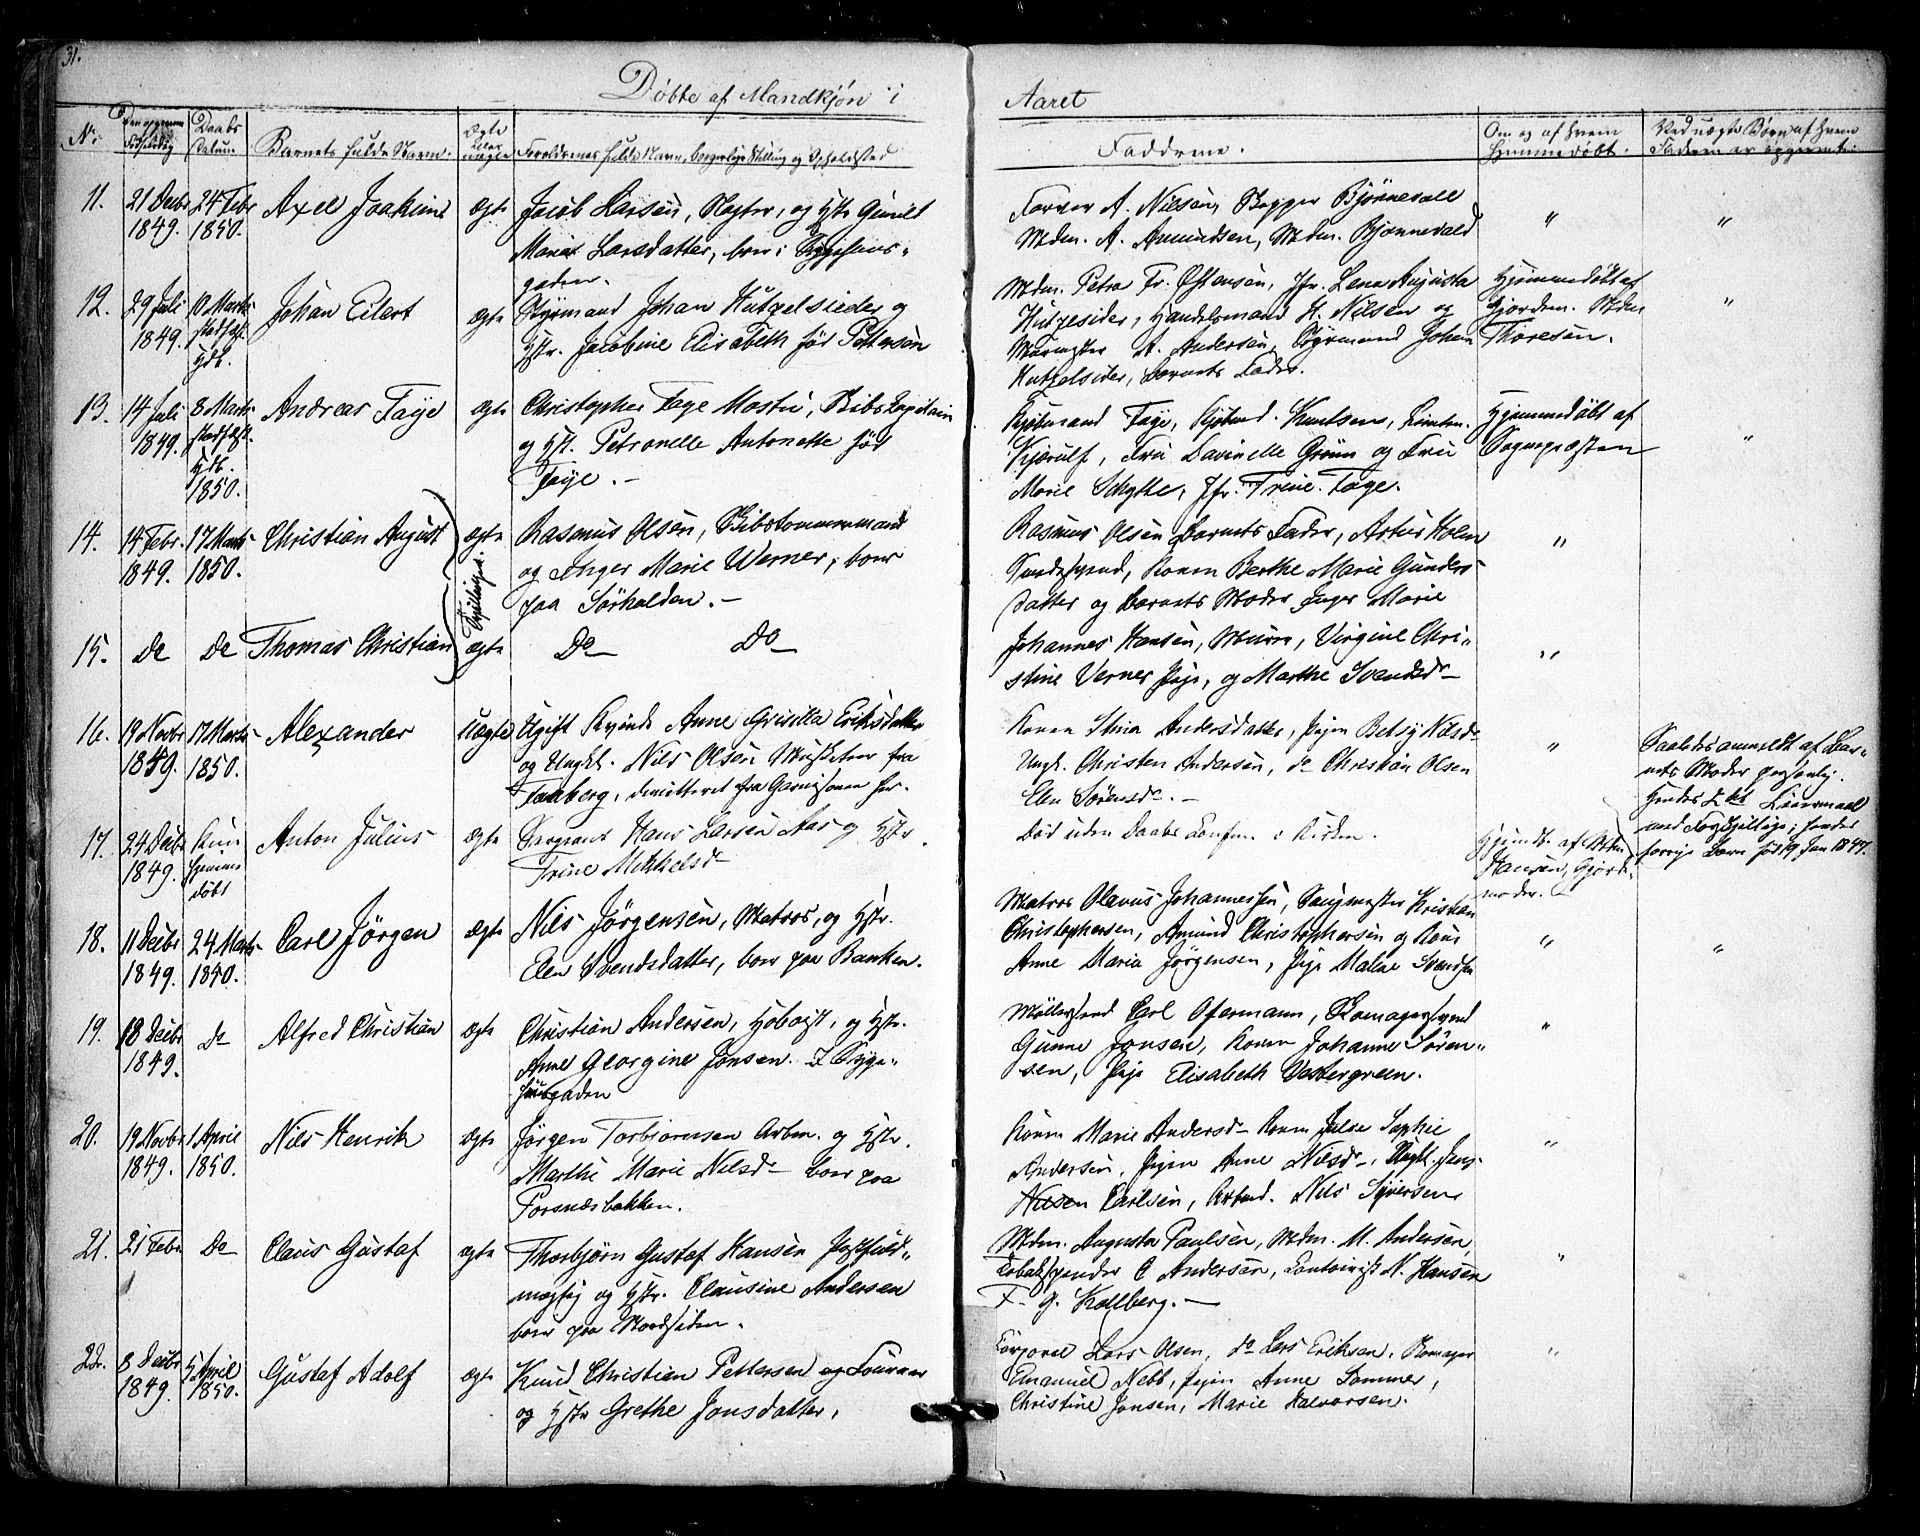 31.
Døbte af Mandkjøn i Aaret
No Daabs Datum Barnets fulde Navn. Ægte eller uægte Forældrenes fulde Navn, borgerlige Stilling og Opholdsted Faddrene. Om og af hvem Hjemmedøbt. Ved uægte Børn af hvem Faderen er opgivet.
11. 21 Decbr 1849. 24 Febr 1850. Axel Joakim ægte
Jacob Larsen, Slagter, og Hstr Gunild
Maria Larsdatter, boer i
gaden.
Farver A. Nilsen, Bygger Bjørnevall
Mdm. A. Amundsen, Mdm. Bjønnevald
" "
12. 29 Juli 1849. 10 Marts stadfæst. Hdb. Johan Eilert ægte
Styrmand Johan Hutzelsieder og
Hstr. Jacobine Elisabeth fød Pettersen
Mdm. Petra Fr. Østensen, Jfr. Lena Augusta
Hutzesider, Handelsmand H. Nilsen og
A. Andersen, Styrmand Johan
Hutzelsider, Barnets Fader.
Hjemmedøbt af
Gjordem. Mdm
Thoresen.
"
13. 14 Juli 1849. 8 Marts stadfæst. Hdb. 1850. Andreas Faye ægte
Christopher Faye Mostu, Skibs Capitain
og Hst. Petronelle Antonette fød
Faye. -
Kjøbmand Faye, Kjøbmd. Knutsen, Lieuten.
Kjærulf, Fru Davinelle Grønn og Fru
Marie Schytte, Jfr. Trine Faye.
Hjemmedøbt af
Sognepræsten
"
14. 14 Febr. 1849. 17 Marts 1850. Christian August ægte Tvillinger
Rasmus Olsen, Skibstømmermand
og Inger Marie Werner, boer
paa Sørhalden. -
Rasmus Olsen Barnets Fader, Artur Holm
Smedesvend, Konen Berthe Marie Gunders-
datter og Barnets Moder Inger Marie
"
15. Do Do Thomas Christian ægte Do Do
Johannes Hansen, Murer, Virgine Chri-
stine Verner Pige, og Marthe Svendsd
"
16. 19 Novbr 1849. 17 Marts 1850. Alexander Uægte
Ugift Kvinde Anne Grisilla Eriksdatter
og Ungkl. Nils Olsen Musketeer fra
Tanberg, dimitteret fra Garnisonen her.
Konen Stina Andersdatter, Pigen Betsy Nilsdr
Ungk. Christen Andersen, do Christian Olsen
Elen Sørensdr. -
"
Saaledes anmeldt af Bar-
nets Moder personlig.
Hendes 2det Leiermaal
med Forskjellige; hendes
forrige Barn fød 19 Jan 1847.
17. 24 Decbr 1849. Kun hjemmedøbt Anton Julius ægte
Sergeant Hans Larsen Aas og Hstr.
Trine Mikkelsd
Død uden Daabs Confm. i Kirken.
Hjemdt. af Mdm
Hansen, Gjorde-
moder. -
18. 11 Decbr 1849. 24 Marts 1850. Carl Jørgen ægte
Nils Jørgensen, Matros, og Hstr.
Elen Svendsdatter, boer paa Banken.
Matros Olavus Johannessen, Kristian
Christophersen, Amund Christophersen og Kone
Anne Maria Jørgensen, Pige Maline Svendsen
" "
19. 18 Decbr 1849. Do Alfred Christian ægte
Christian Andersen, Hoboist, og Hstr.
Anne Georgine Jonsen. I Syge-
husgaden
Møllersvend Carl Ofermann, Skomagersvend
Gunne Jonsen, Konen Johanne Søren-
sen, Pige Elisabeth Vestergreen.
"
20. 19 Novbr 1849. 1 April 1850. Nils Henrik ægte
Jørgen Torbjørnsen Arbm. og Hstr.
Marthe Marie Nilsd boer paa
Porsnæsbakken.
Konen Marie Andersd Konen Sophie
Andersen, Pigen Anne Nilsd, Ungk. Jens
Nilsen Carlsen, Arbmd. Nils Syversen
"
21. 21 Febr Do Claus Gustaf ægte
Thorbjørn Gustaf Hansen Postfuld-
mægtig og Hstr. Clausine Andersen
boer paa Nordsiden.
Mdm. Augusta Paulsen, Mdm. M. Andersen,
Tobakspinder C Andersen, Contoirist N. Hansen
F. G. Kallberg. -
"
22. 8 Decbr 1849. 5 April 1850. Gustaf Adolf ægte
Knud Christian Pettersen og
og Hstr Grethe Jonsdatter,
Corporal Lars Olsen, do Lars Eriksen,
Emanuel Nebb, Pigen Anne Sommer,
Christine Jonsen, Marie Halvorsen.
"